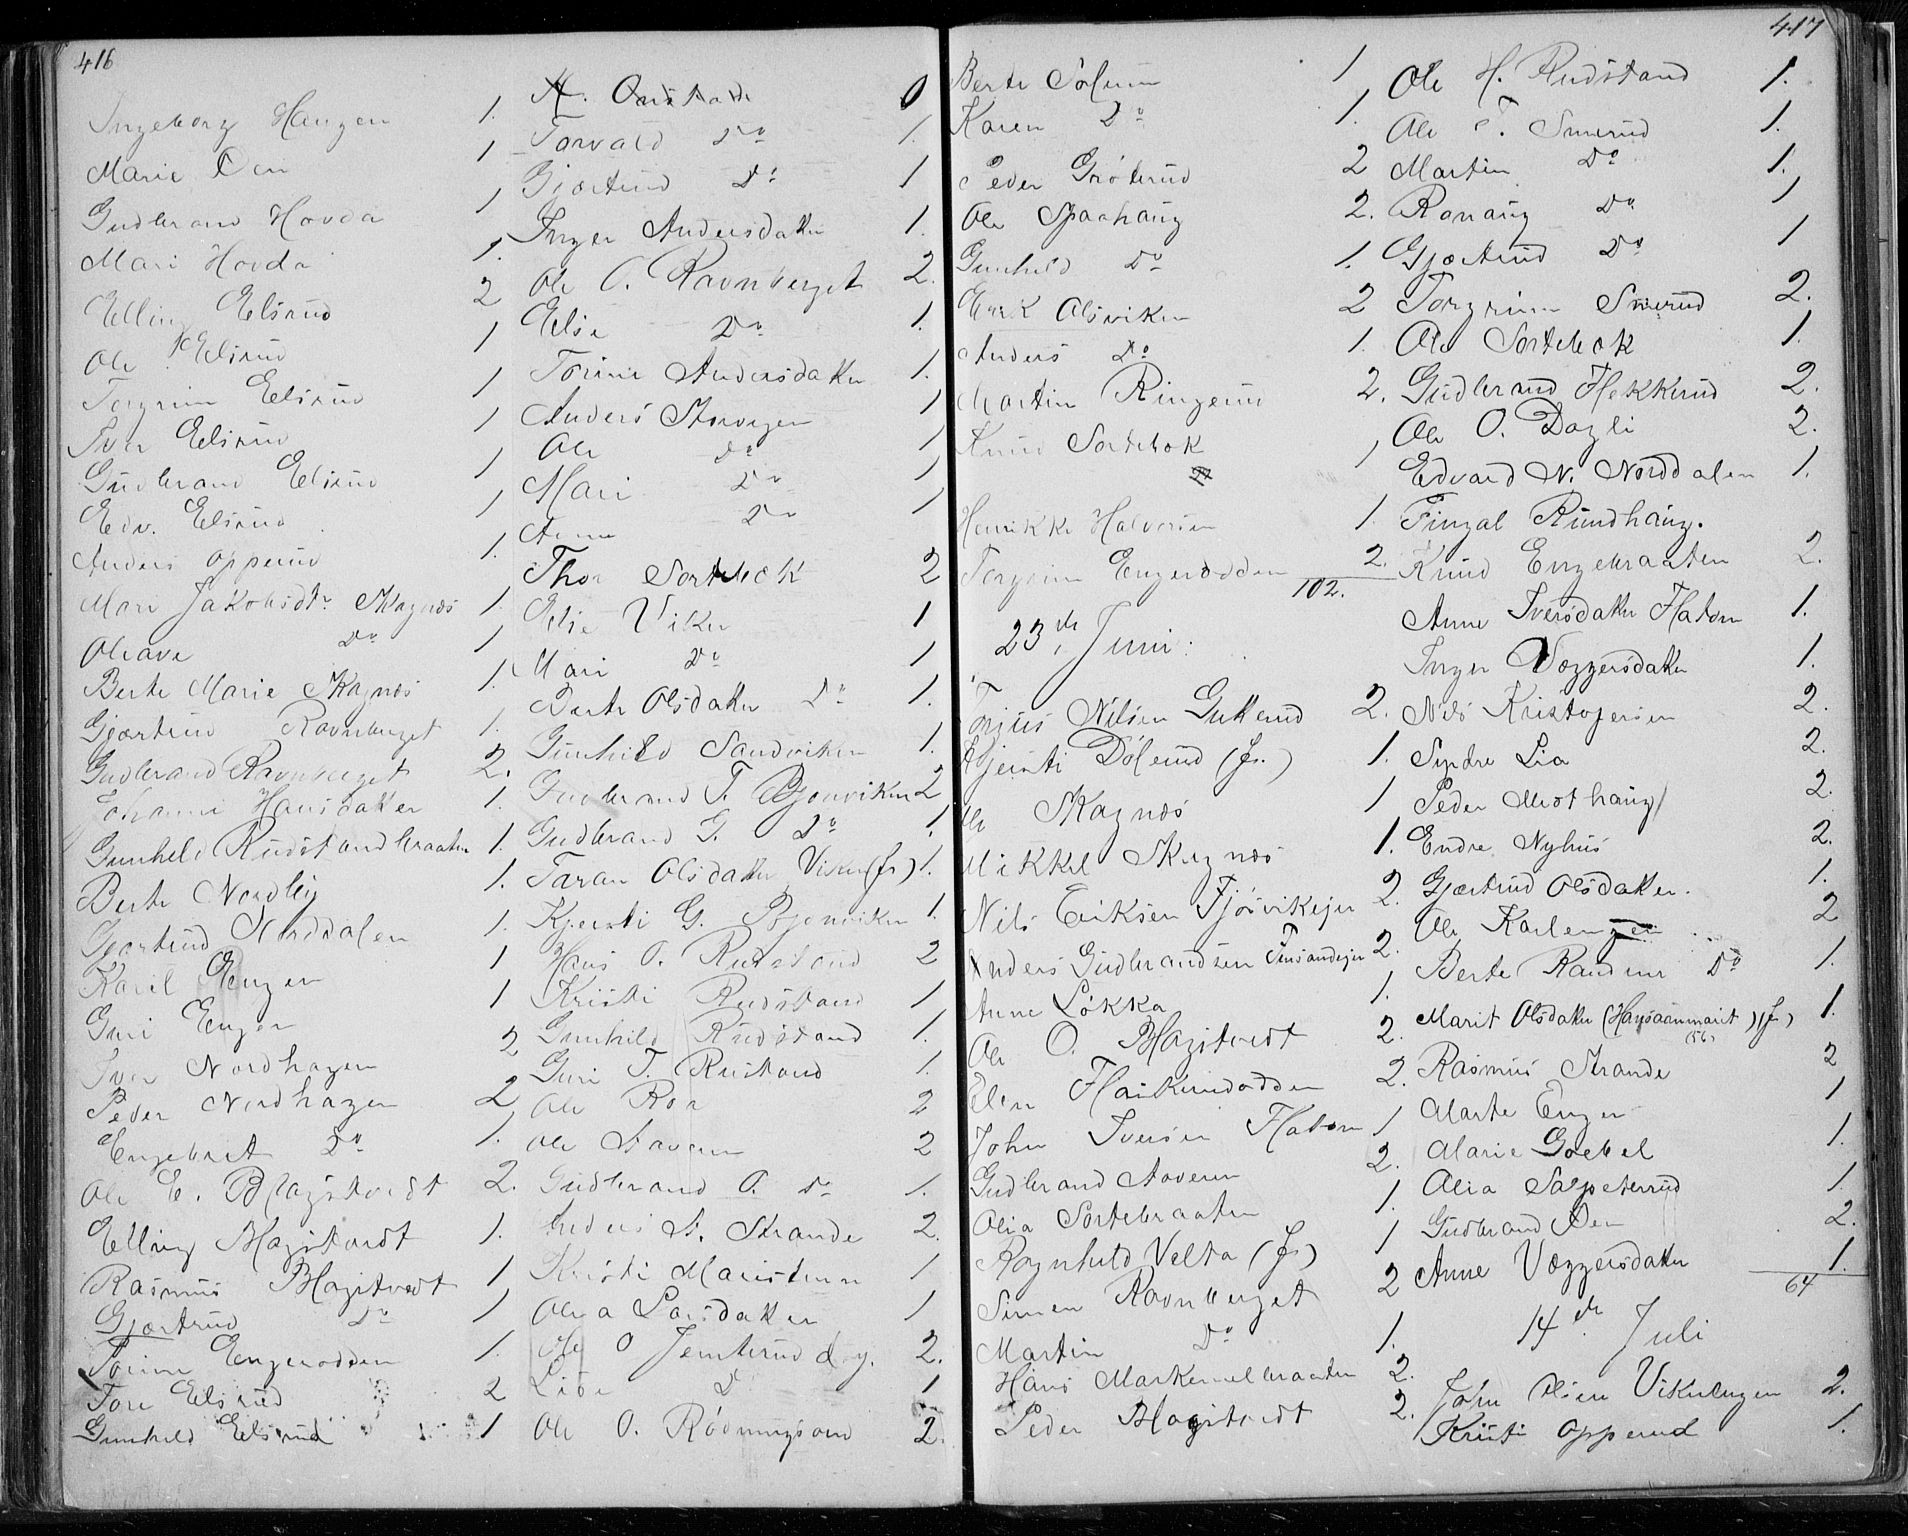 416
Ingeborg Haugen 1.
Marie Øen 1
Gudbrand Hovda 1
Mari Hovda 1.
Elling Elsrud 2
Ole Elsrud 1
Torgrim Elsrud 1
Iver Elsrud 1
Gudbrand Elsrud 1
Edv. Elsrud 1
Anders Opperud 1.
Mari Jakobsdtr Skagnæs 1.
Oleave Do 1
Berte Marie Skagnæs 1.
Gjærtrud Ravnberget 1.
Gudbrand Ravnberget 2.
Johanne Hansdatter 1.
Gunhild Rudstandbraaten 1.
Berte Nordlig 1.
Gjærtrud Norddalen 1.
Karil Enger 1
Guri Enger 1
Iver Nordhagen 2
Peder Nordhagen 2
Engebret Do 1.
Ole E. Blagstvedt 2.
Elling Blagstvedt 1.
Rasmus Blagstvedt 1
Gjærtrud Do 1
Torine Engerodden 1.
Tore Elsrud 2
Gunhild Elsrud 1
0
Torvald Do 1.
Gjærtrud Do 1
Inger Andersdatter 1.
Ole O. Ravnberget 2.
Else Do 1.
Torine Andersdatter 1.
Anders Storvegen 1
Ole Do 1
Mari Do 1
Anne Do 1
Thor Sortebek 2
Else Viker 1
Mari Do 1
Berte Olsdatter Do 1.
Gunhild Sandviken 1.
Gudbrand T. Bjonviken 2
Gudbrand G. Do 1.
Taran Olsdatter Viker (fr) 1.
Kjersti G. Bjonviken 1.
Hans O. Rudstand 2
Kristi Rudstand 1
Gunhild Rudstand 1.
Guri T. Rustand 1.
Ole Roa 2
Ole Staveren 2
Gudbrand O. Do 1.
Anders A. Strande 2.
Kristi Maristuen 1
Olea Larsdatter 1
Ole O Jemterud d.y. 2.
Lise D 1
Ole O. Rødningsand 2.
417
Berte Solum 1
Karen Do 1.
Peder Grøterud 2
Ole Spaahaug 2.
Gunhild Do 1.
Erik Olsviken 2
Anders Do 1.
Martin Ringerud 2.
Knud Sortebek 1
Henrikke Halvorsen 1.
Torgrim Engerodden 2.
102.
23de Juni.
Torjus Nilsen Gukerud 2.
Kjersti Dølerud (fr.) 1.
Ole Skagnæs 1
Mikkel Skagnæs 1.
Nils Eriksen Fjøsvikejer 2.
Anders Gudbrandsen Tusandejer 2.
Anne Løkka 1.
Ole O. Blagstvedt 2.
Elen Flaskerudodden 2.
John Iversen Flaten 1
Gudbrand Staveren 2.
Olia Sortebraaten 1.
Ragnhild Velta (fr) 1
Simen Ravnberget 2
Martin Do 1.
Hans Markerudbraaten 2.
Peder Blagstvedt 2.
Ole H. Rudstand 1.
Ole T. Smerud 1.
Martin Do 1.
Ranaug Do 1
Gjærtrud Do 1
Torgrim Smerud 2.
Ole Sortebek 1.
Gudbrand Hekkerud 2.
Ole O. Dagli 2.
Edvard N. Norddalen 1.
Fingal Rundhaug.
Knud Engebraaten 2.
Anne Iversdatter Flaten 1.
Inger Væggersdatter 1.
Nils Kristofersen 2.
Syndre Lia 2.
Peder Mosthaug 2.
Endre Nyhus 2.
Gjærtrud Olsdatter. 1.
Ole Karlengen 2
Berte Randine Do 1.
Marit Olsdatter (Haugsammarit) (fr) 1.
Rasmus Strande 2
Marte Enger 1
Marie Goebel 1.
Olia Salpeterrud 1.
Gudbrand Øen 2.
Anne Væggersdatter 1.
64
14de Juli
John Olsen Vikerengen 2.
Kristi Opperud 1.